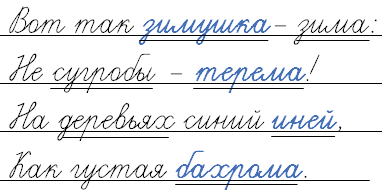 Вот так зимушка – зима:
Не сугробы – терема!
На деревьях синий иней,
Как густая бахрома.